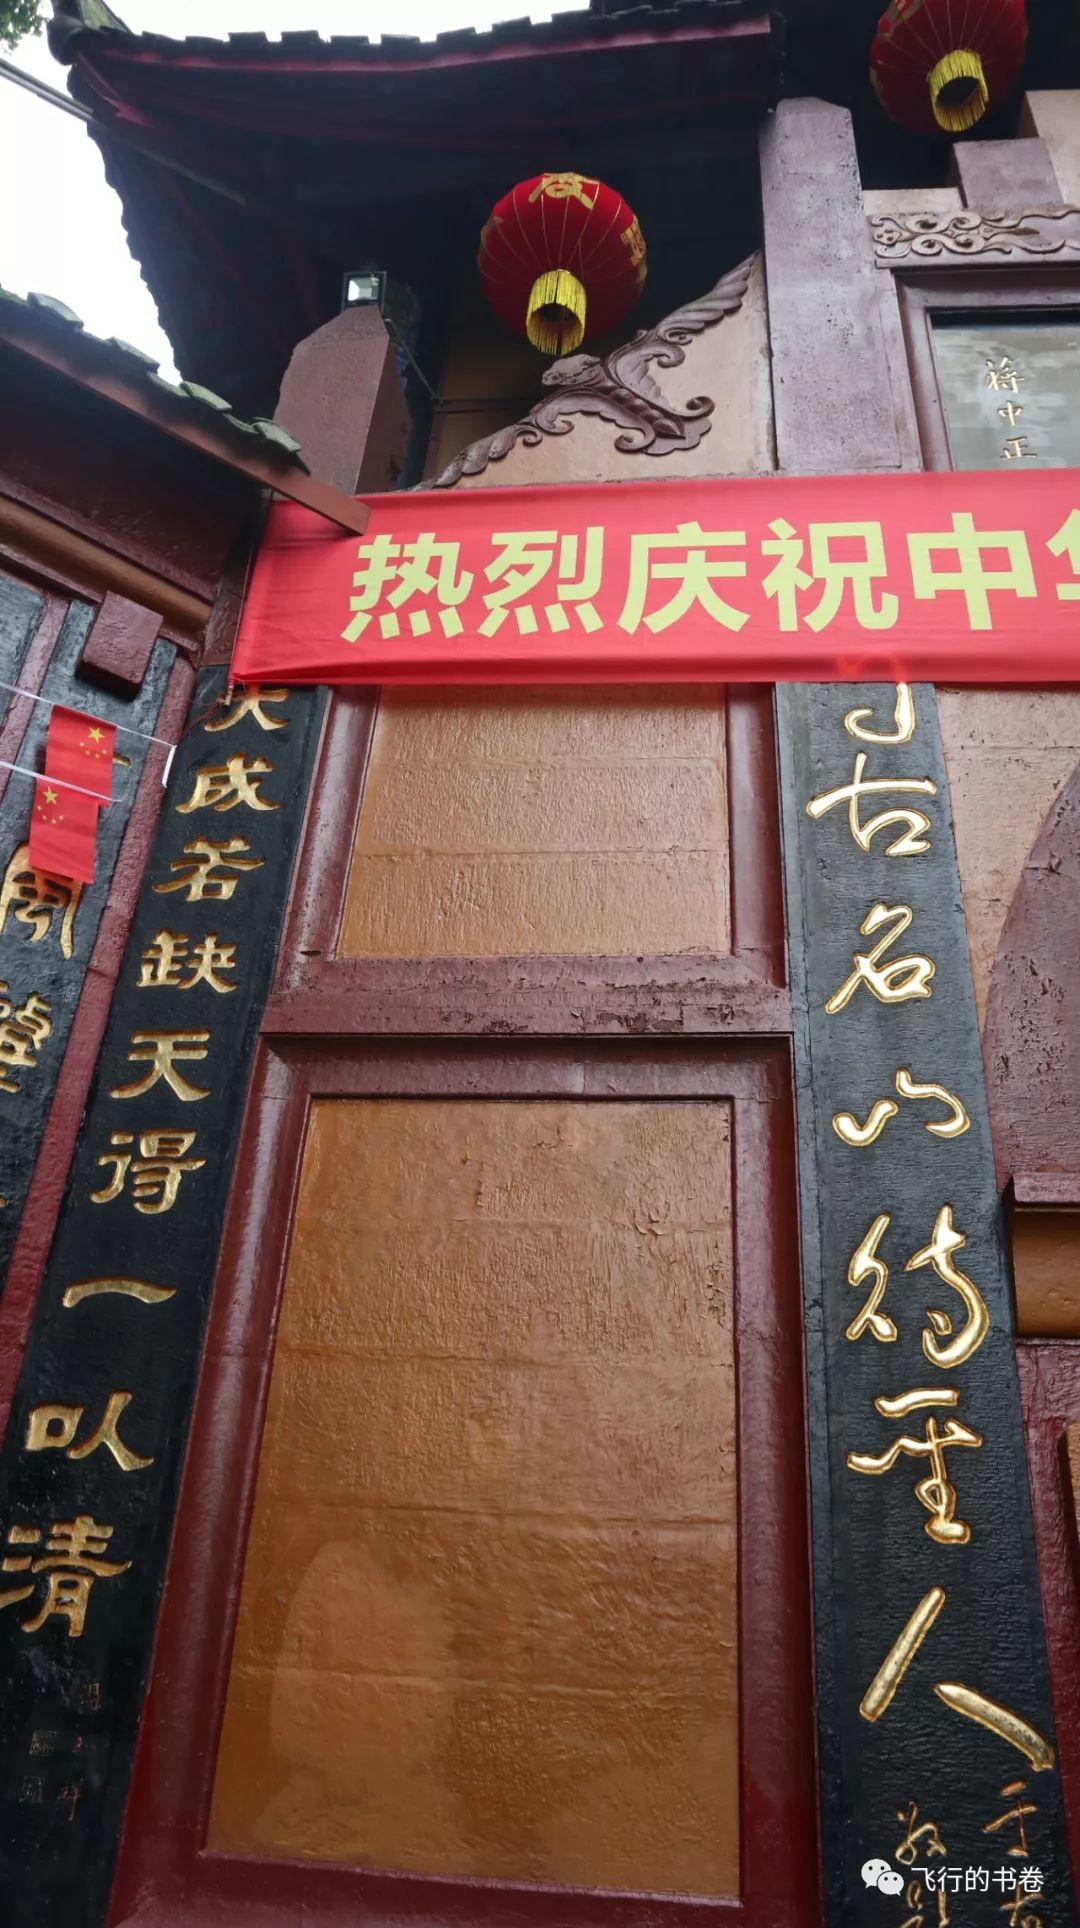 蔣中正
热烈庆祝中
大成若缺天得一以清
古名山待聖人
于右
風
飞行的书卷